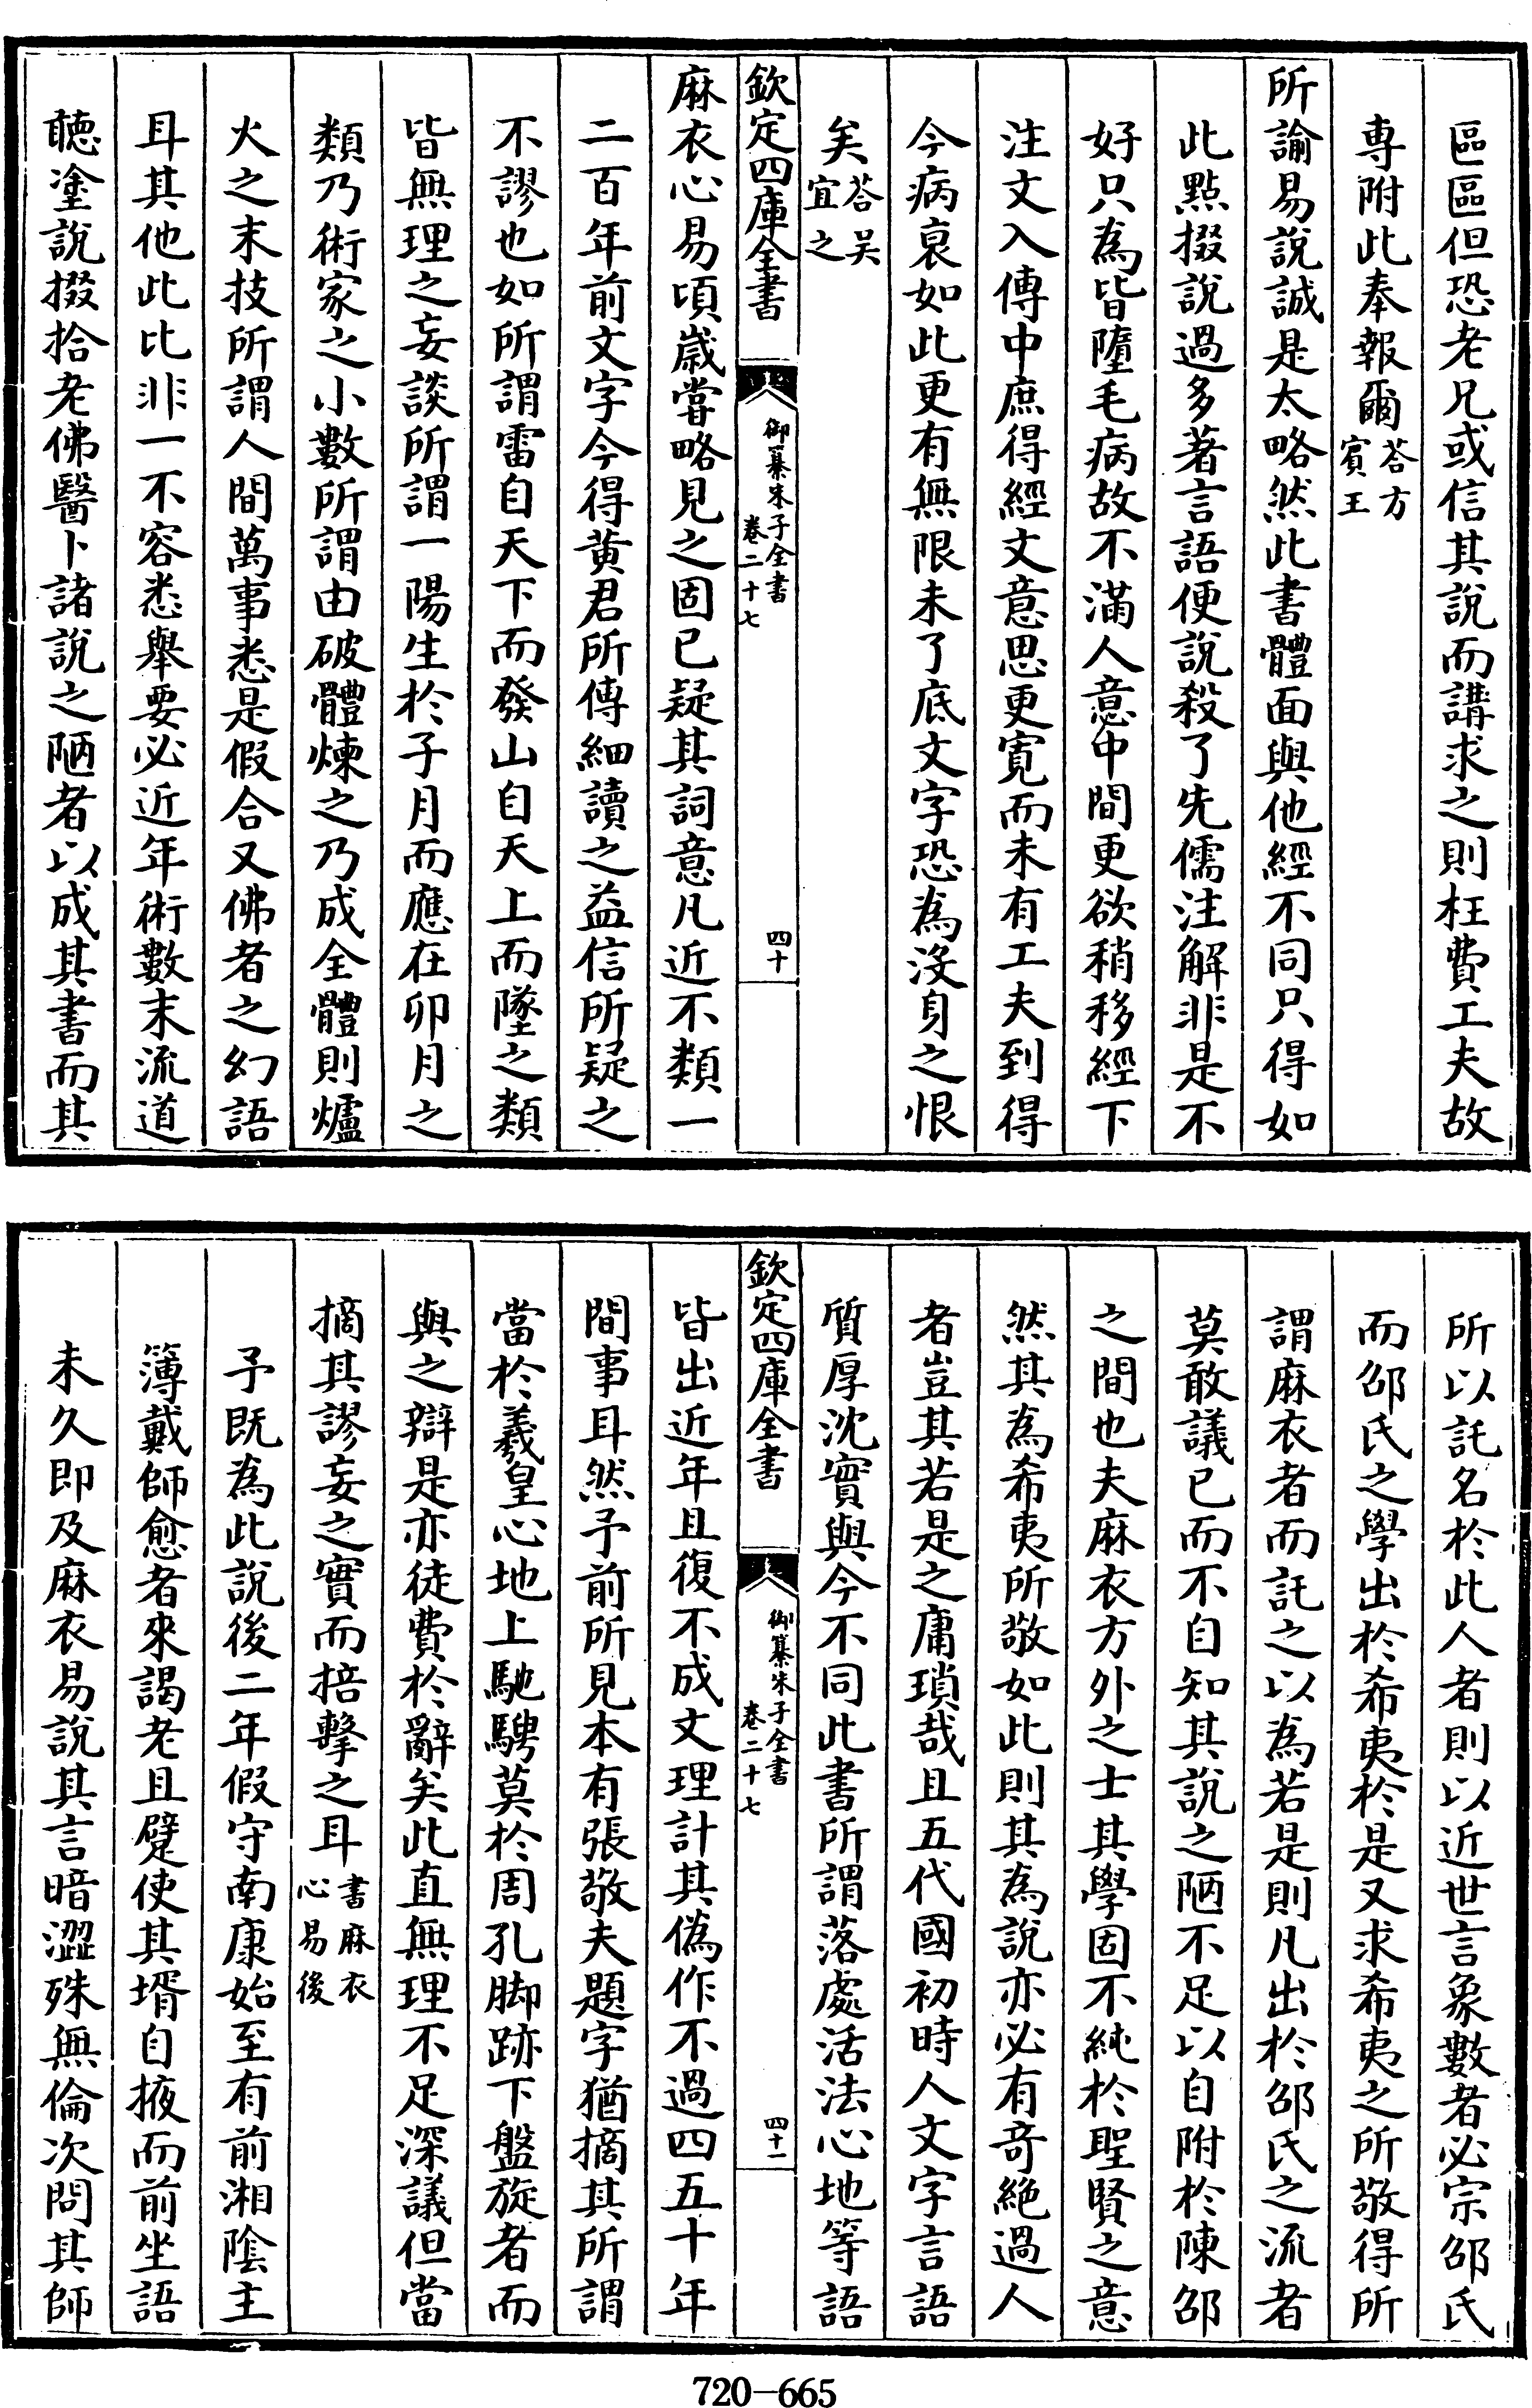 區區但恐老兄或信其說而講求之則枉費工夫故
専附此奉報爾答方賔王
所諭易說誠是太略然此書體面與他經不同只得如
此點掇說過多著言語便說殺了先儒注解非是不
好只為皆墮毛病故不滿人意中間更欲稍移經下
注文入傳中庶得經文意思更寛而未有工夫到得
今病衰如此更有無限未了底文字恐為沒身之恨
矣答吴宜之
欽定四庫全書
御纂朱子全書
卷二十七
四十
麻衣心易頃嵗嘗略見之固已疑其詞意凡近不類一
二百年前文字今得黄君所傳細讀之益信所疑之
不謬也如所謂雷自天下而發山自天上而墜之類
皆無理之妄談所謂一陽生於子月而應在卯月之
類乃術家之小數所謂由破體煉之乃成全體則爐
火之末技所謂人間萬事悉是假合又佛者之幻語
耳其他此比非一不容悉舉要必近年術數末流道
聽塗說掇拾老佛醫卜諸說之陋者以成其書而其
所以託名於此人者則以近世言象數者必宗邵氏
而邵氏之學出於希夷於是又求希夷之所敬得所
謂麻衣者而託之以為若是則凡出於邵氏之流者
莫敢議已而不自知其說之陋不足以自附於陳邵
之間也夫麻衣方外之士其學固不純於聖賢之意
然其為希夷所敬如此則其為說亦必有竒絶過人
者豈其若是之庸瑣哉且五代國初時人文字言語
質厚沈實與今不同此書所謂落處活法心地等語
欽定四庫全書
御纂朱子全書
卷二十七
四十一
皆出近年且復不成文理計其偽作不過四五十年
間事耳然予前所見本有張敬夫題字猶摘其所謂
當於羲皇心地上馳騁莫於周孔脚跡下盤旋者而
與之辯是亦徒費於辭矣此直無理不足深議但當
摘其謬妄之實而掊擊之耳書麻衣心易後
予既為此說後二年假守南康始至有前湘隂主
簿戴師愈者來謁老且躄使其壻自掖而前坐語
未久即及麻衣易說其言暗澀殊無倫次問其師
720-665